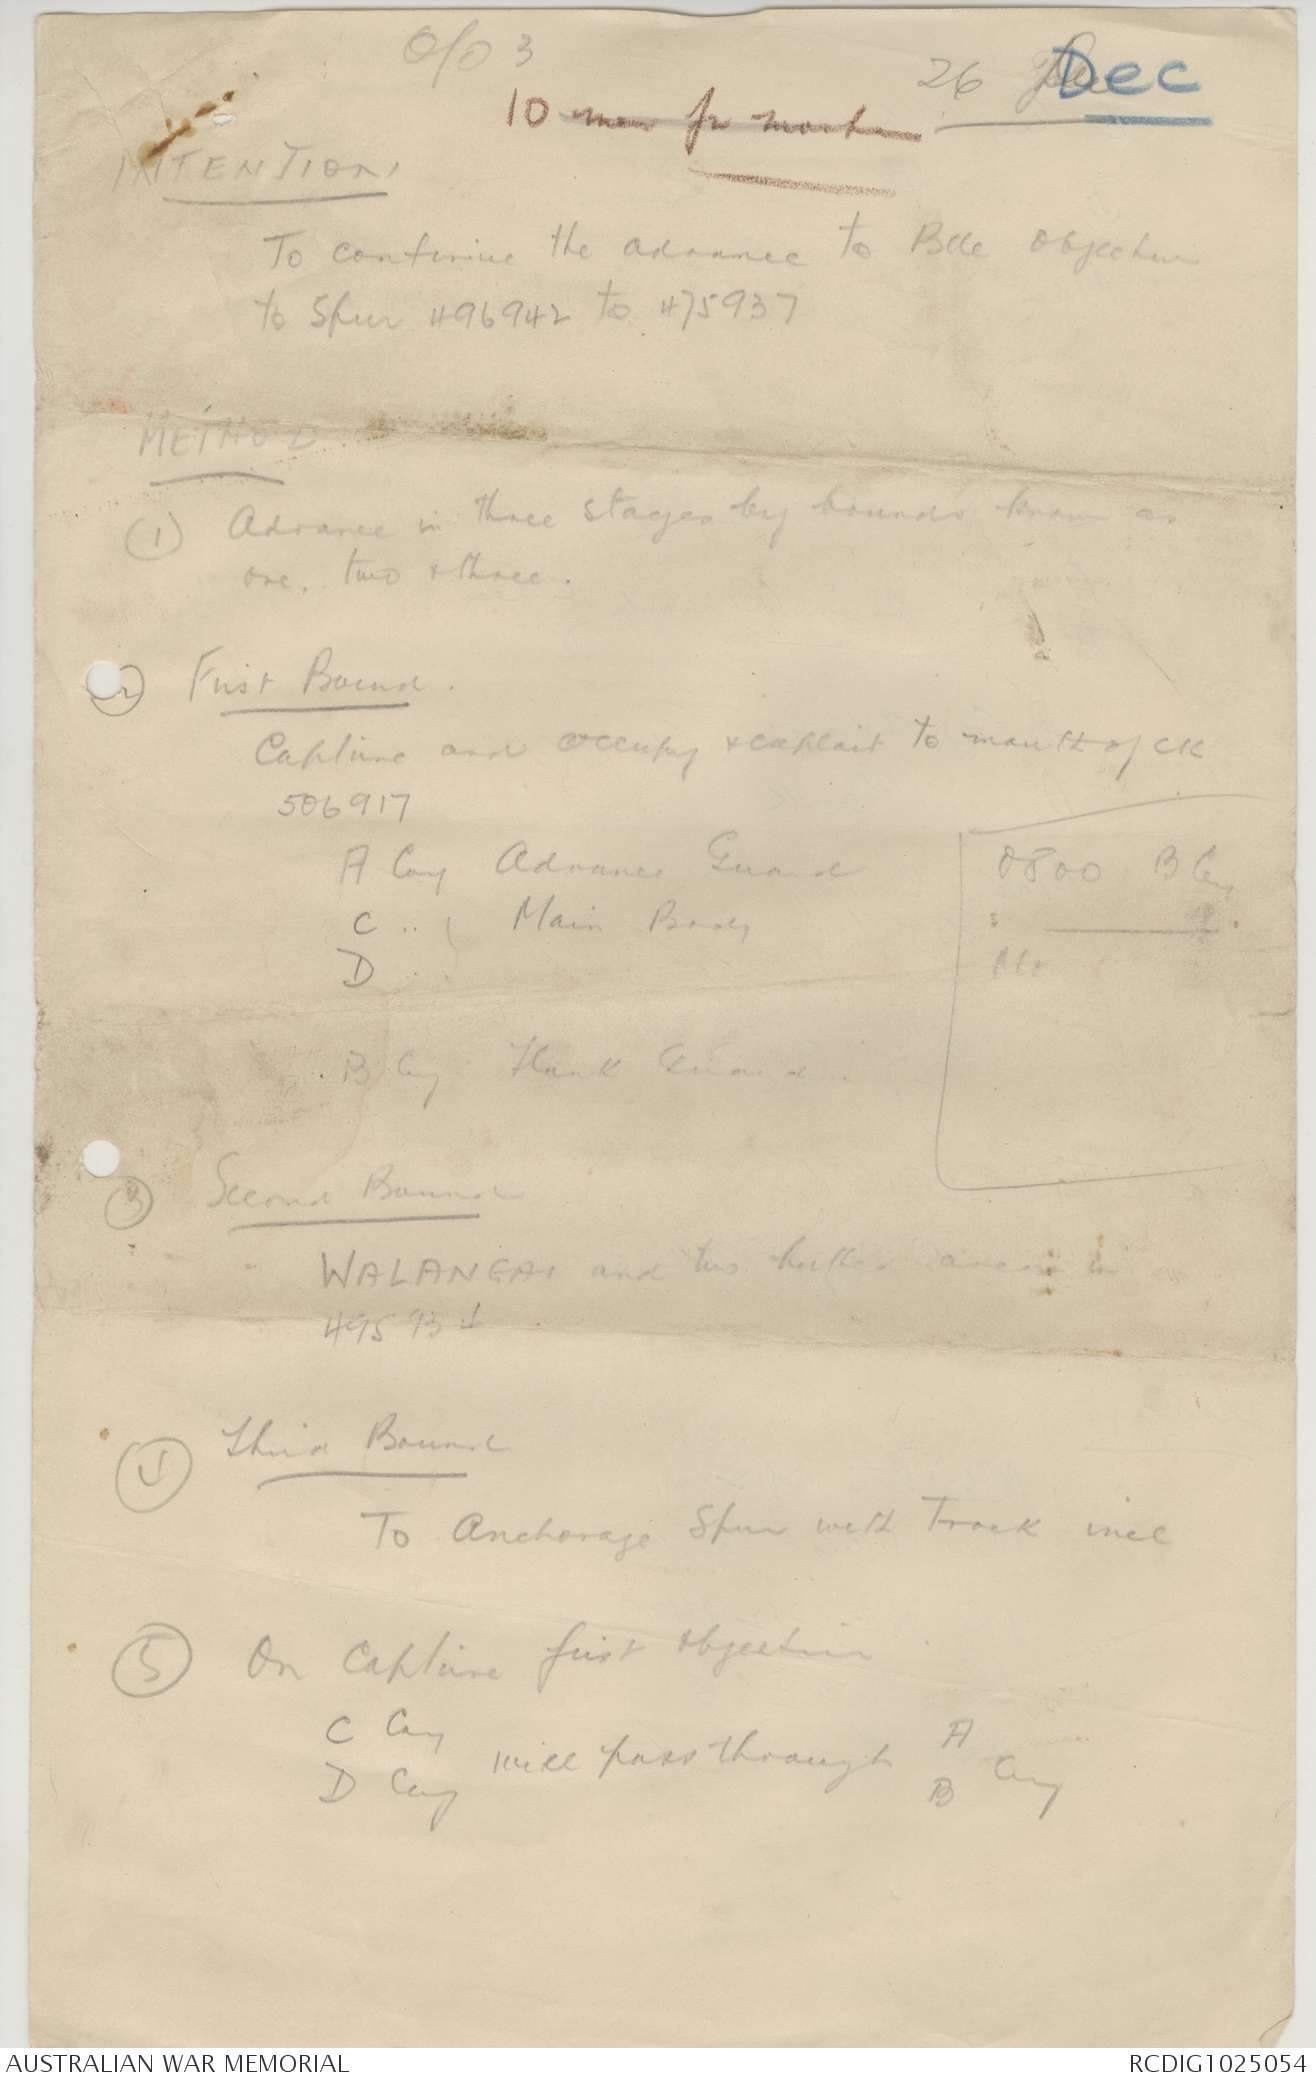 O/O 3
26 Dec
10 men for mortar
INTENTION
To continue the advance to Bde objective
to Spur 496942 to 475937
METHOD
(1) Advance in three stages by bounds known as
one, two & three.
(2) First Bound.
Capture and occupy & exploit to mouth of CK
506917
A Coy Advance Guard
C .. } Main Body
D
B Coy Flank Guard
0800 B Coy
(3) Second Bound
WALANGAI and two hutted areas in
Third Bound
To Anchorage Spur with Track incl
(5) On capture first objective
C Coy
D Coy will pass through A
B Coy
AUSTRALIAN WAR MEMORIAL
RCDIG1025054